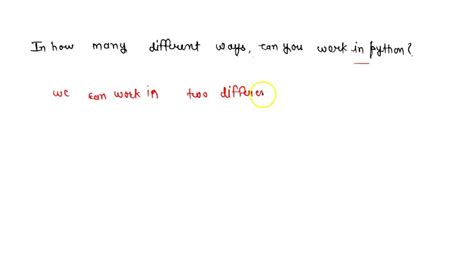 In how many different ways, can you work in python?
we can work in two differen